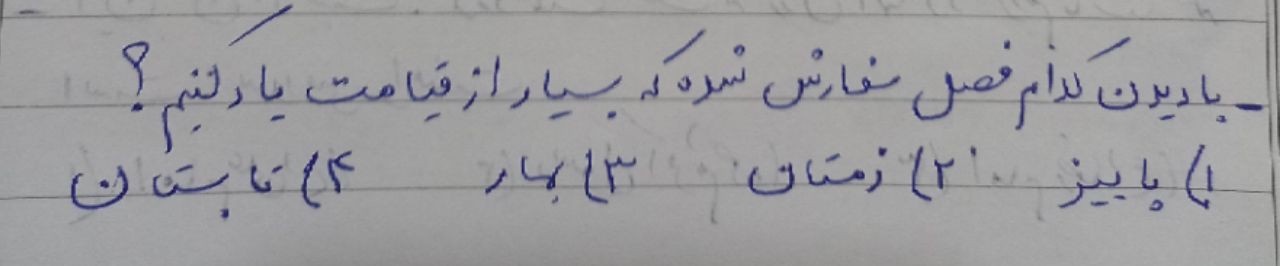 - با دیدن کدام فصل سفارش شده که بسیار از قیامت یاد کنیم؟
۱) پاییز ۲) زمستان ۳) بهار ۴) تابستان